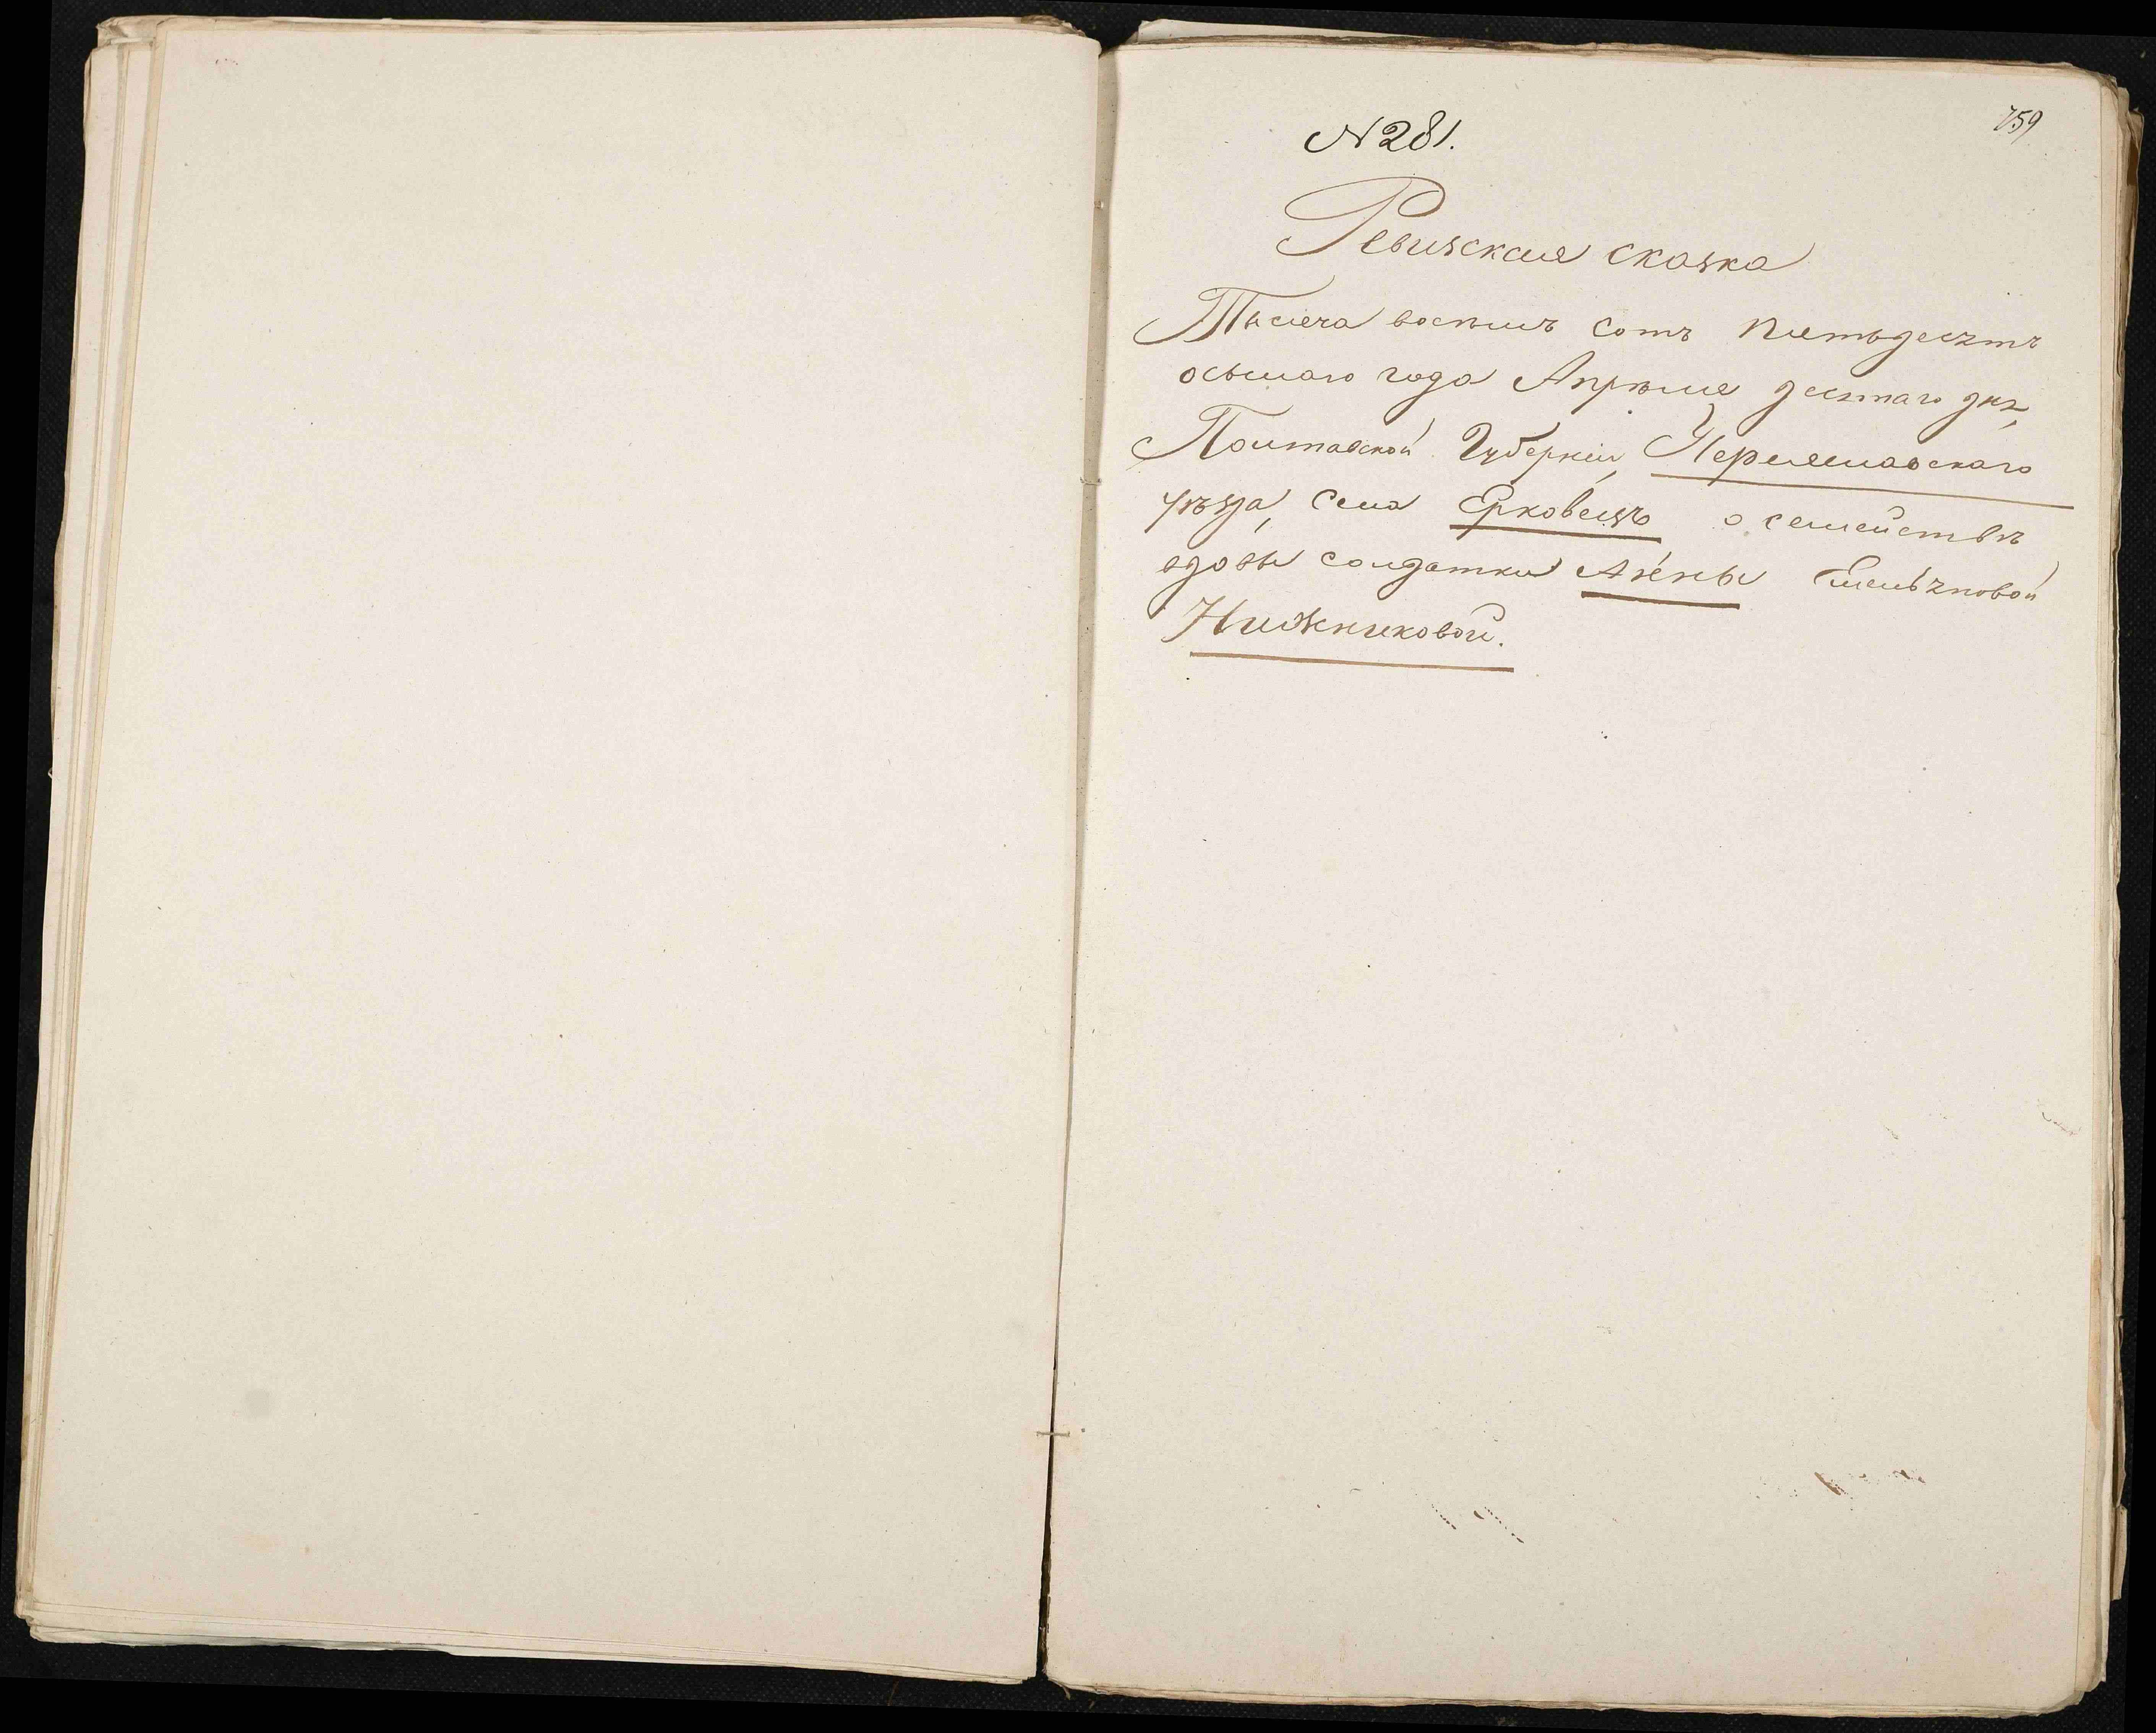 759
N 281.
Ревизская сказка
Тысяча восѣмъ сотъ пятьдесятъ
осьмаго года Апрѣля десятаго дня,
Полтавской Губерніи, Переяславскаго
уѣзда, села Ерковецъ о семействѣ
вдовы солдатки Алены
Нижниковой.